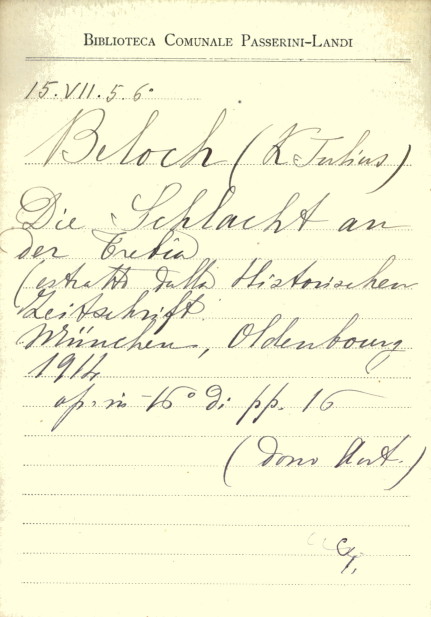 BIBLIOTECA COMUNALE PASSERINI-LANDI
15.VII.5.6°
Beloch (K Julius)
Die Schlacht an
der Trebia
(estratto dalla Historischen
Zeitschrift.
München, Oldenbourg
1914
op. in 16° di pp. 16
(dono Aut.)